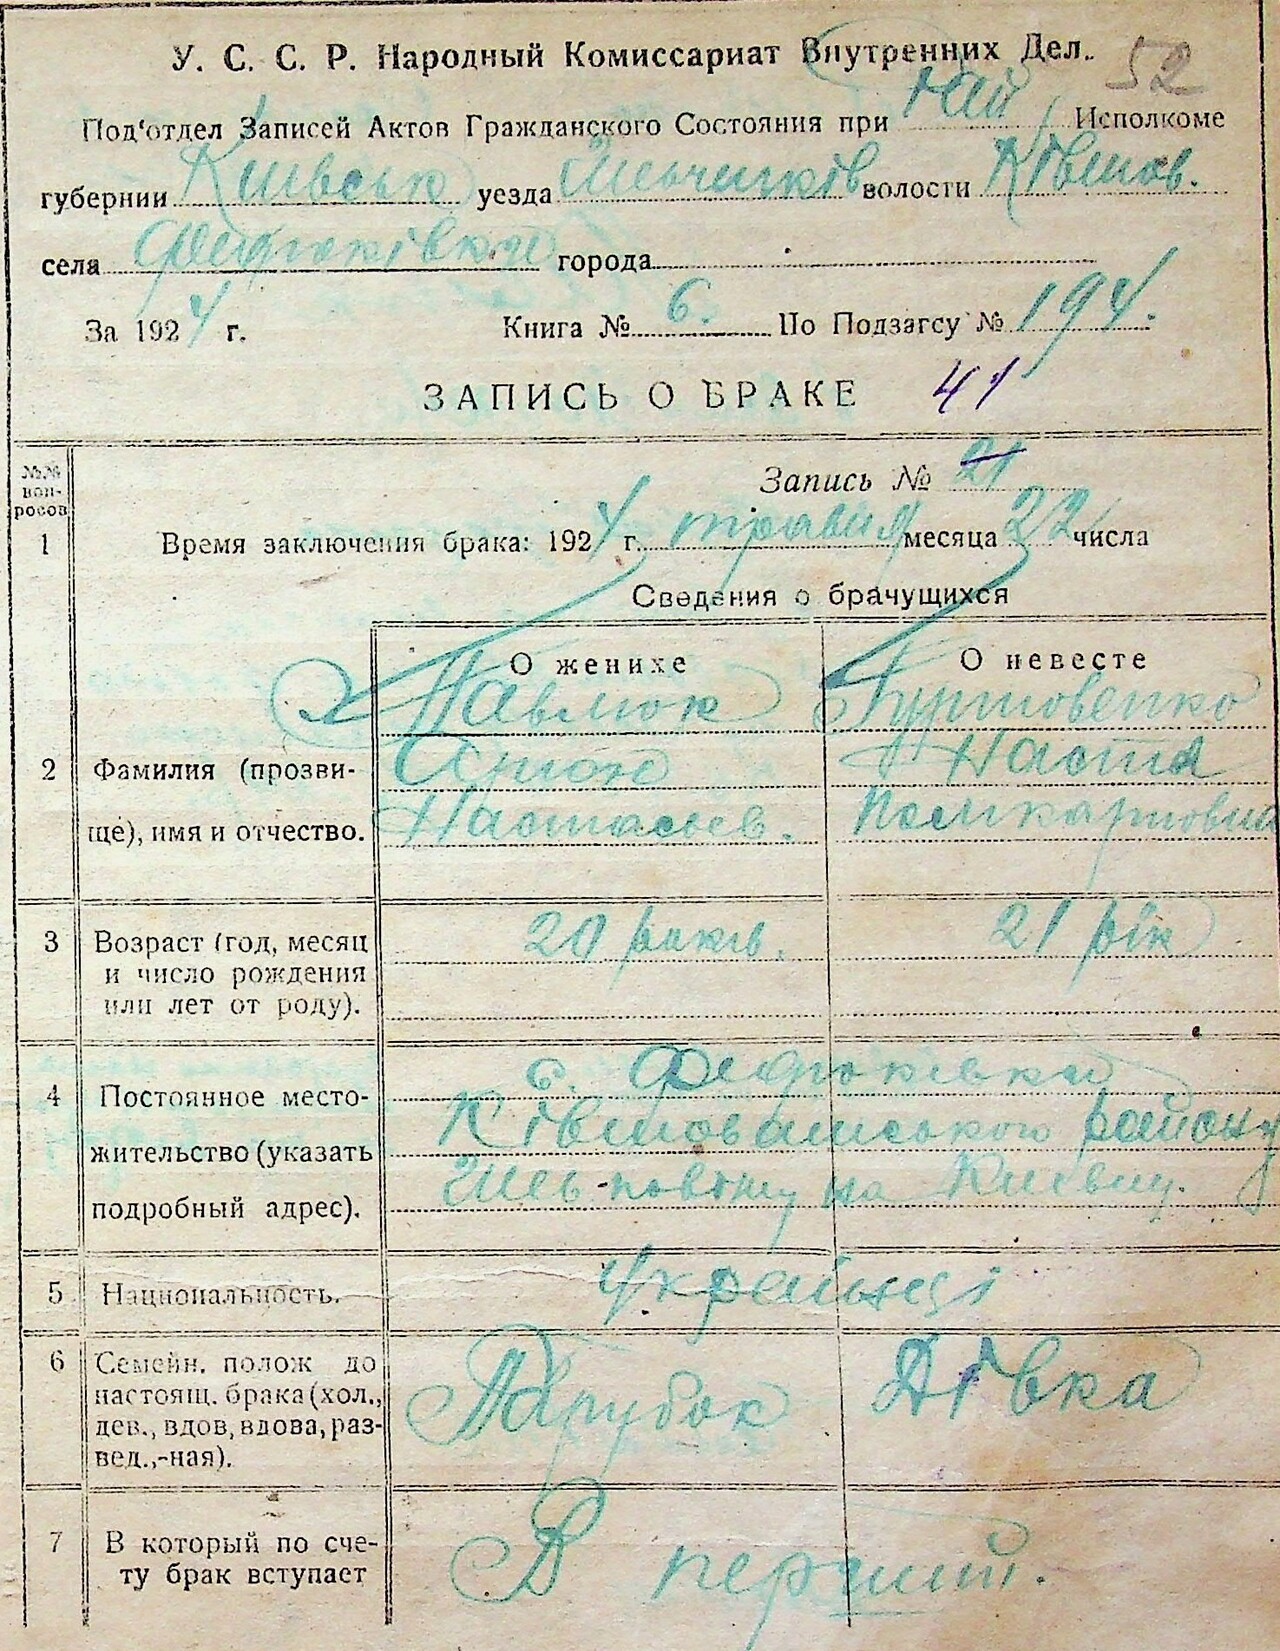 У. С. С. Р. Народный Комиссариат Внутренних Дел. 52
Под'отдел Записей Актов Гражданского Состояния при Рай Исполкоме
губернии Київськ уезда волости Ківшов.
села Федюківка города
За 1924 г. Книга № 6. По Подзагсу № 194.
ЗАПИСЬ О БРАКЕ 41
№№ вопросов
Запись № 21
1 Время заключения брака: 1924 г. травня месяца 22 числа
Сведения о брачущихся
О женихе О невесте
Павлюк Гуртовенко
2 Фамилия (прозви- Настя
ще), имя и отчество. Настасьев. Поликарповна
3 Возраст (год, месяц 20 років. 21 рік
и число рождения
или лет от роду).
с. Федюківка
4 Постоянное место- Ківшоватського району
жительство (указать Шев-повіту на Київщ.
подробный адрес).
5 Национальность. Українці
6 Семейн. полож до Парубок Дівка
настоящ. брака (хол.,
дев., вдов, вдова, раз-
вед.,-ная).
7 В который по сче- В перший.
ту брак вступает